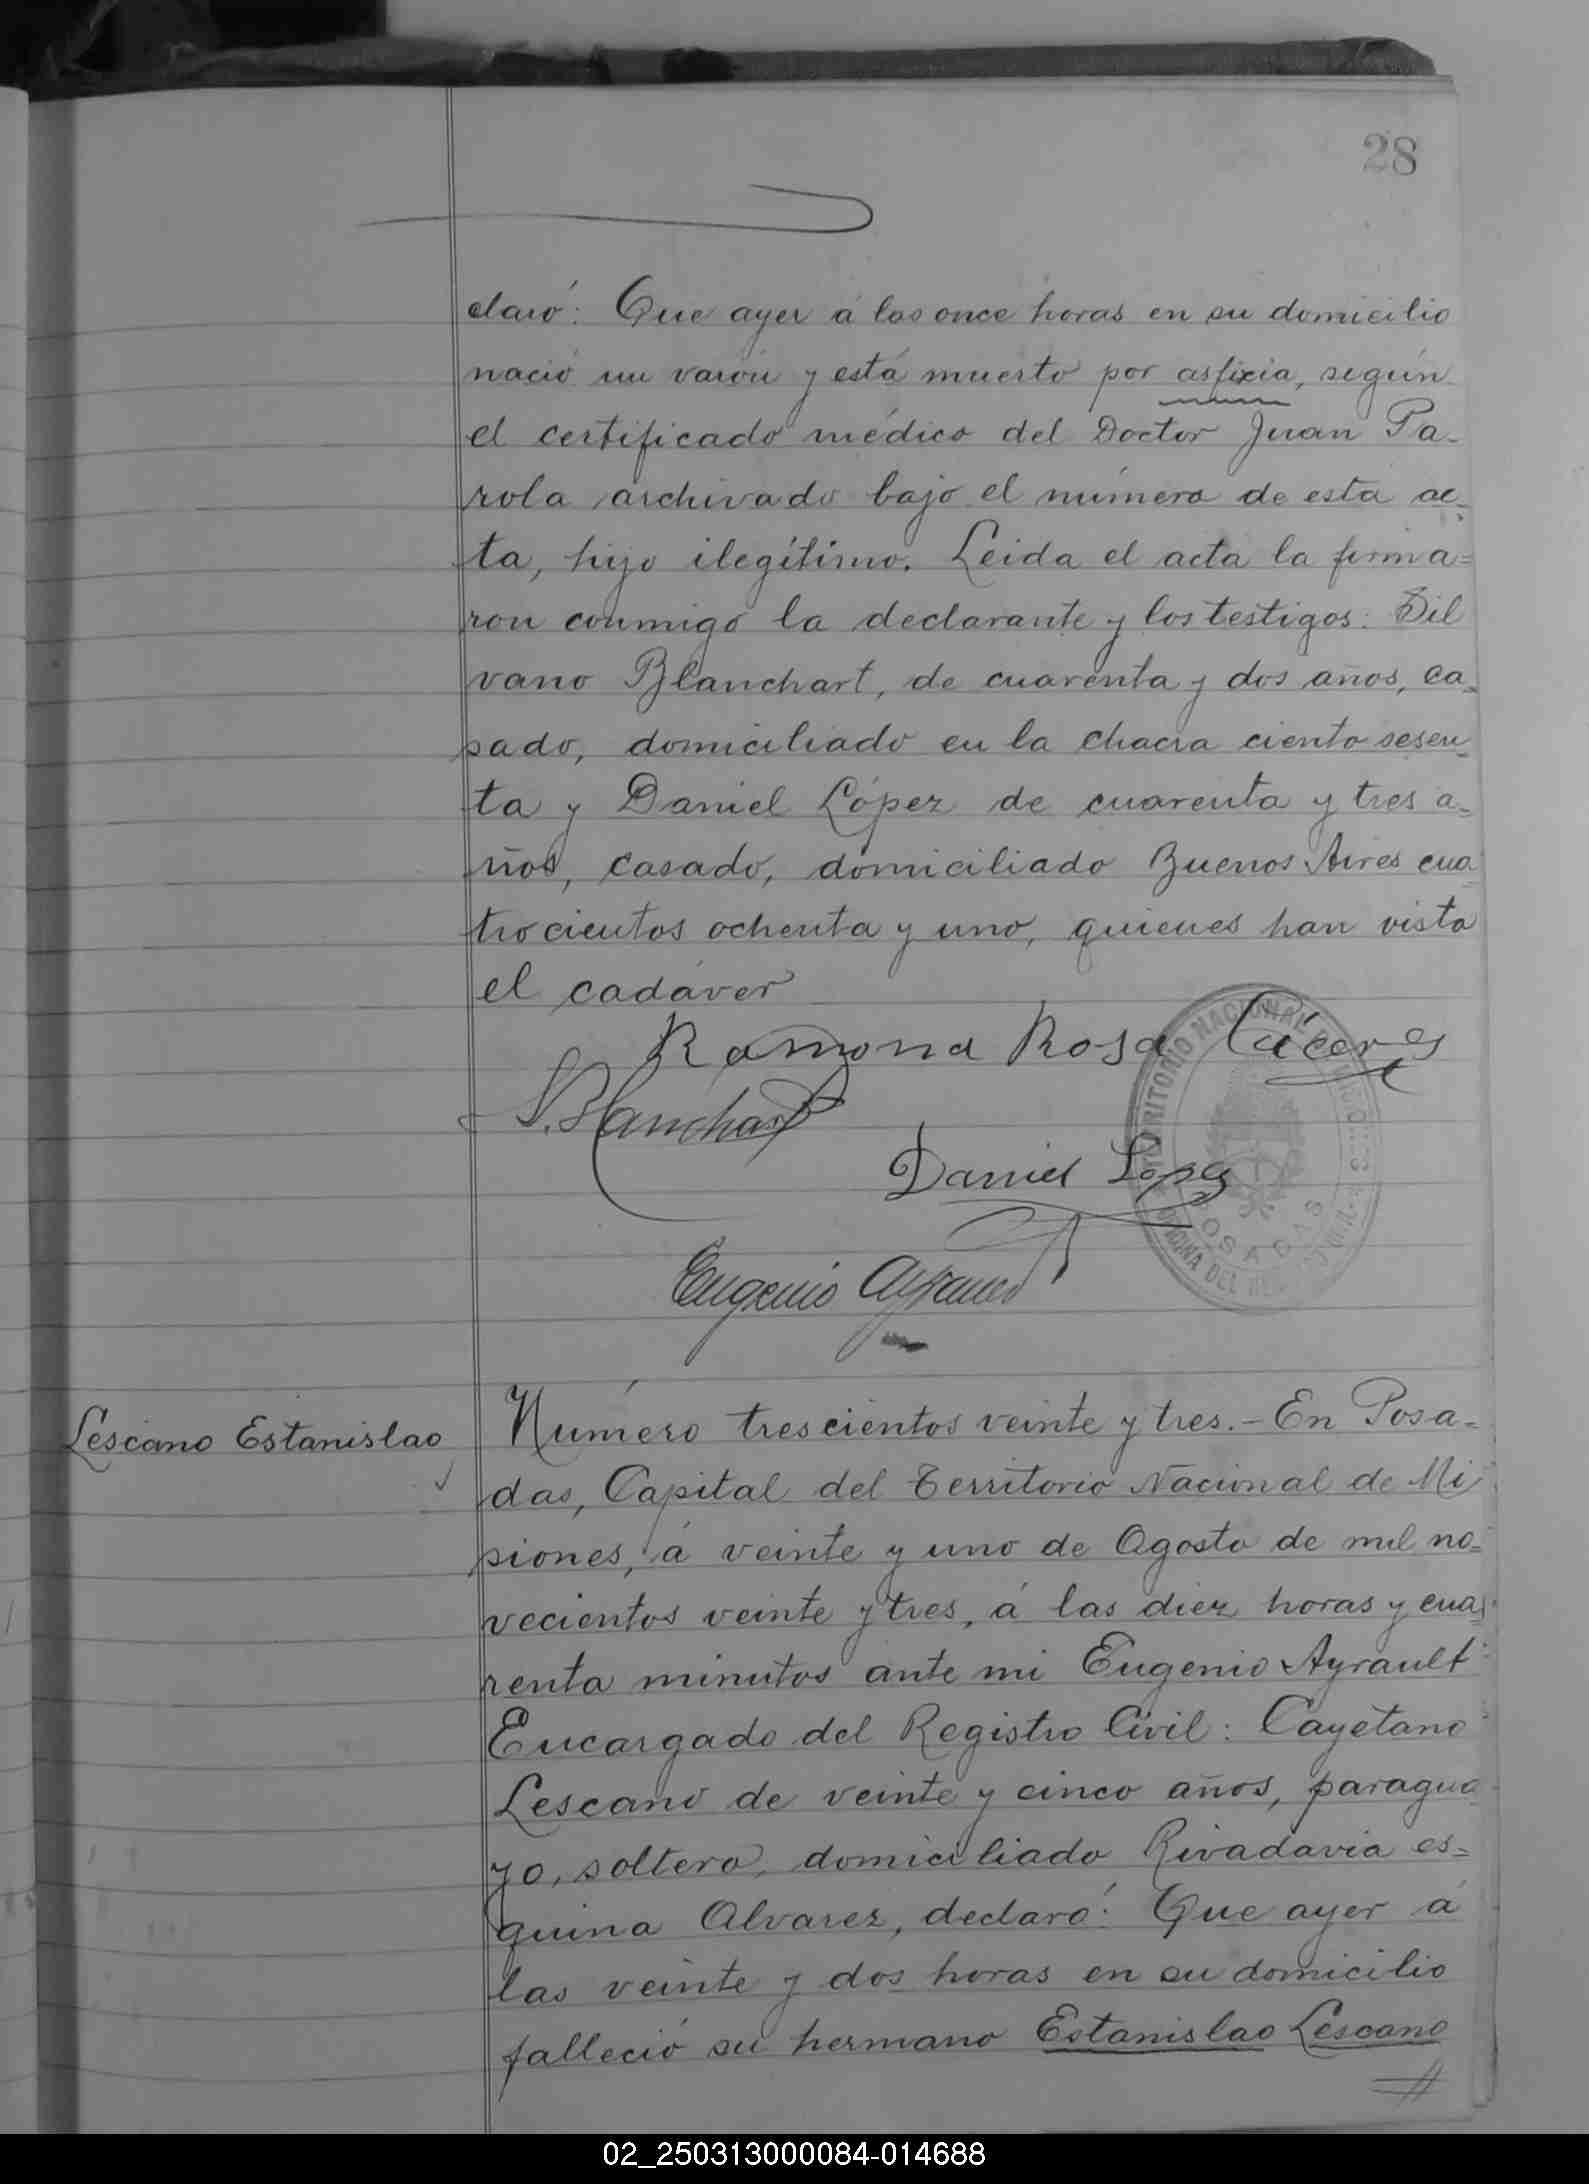 28
claró: Que ayer á las once horas en su domicilio
nació un varón y está muerto por asfixia, según
el certificado médico del Doctor Juan Pa-
rola archivado bajo el número de esta ac-
ta, hijo ilegítimo. Leida el acta la firma=
ron conmigo la declarante y los testigos: Sil
vano Blanchart, de cuarenta y dos años, ca-
sado, domiciliado en la chacra ciento sesen-
ta y Daniel López de cuarenta y tres a-
ños, casado, domiciliado Buenos Aires cua
trocientos ochenta y uno, quienes han visto
el cadáver
Ramona Rosa Cáceres
S. Blanchart
Daniel Lopez
TERRITORIO NACIONAL DE MISIONES
POSADAS
OFICINA DEL REGISTRO CIVIL
Eugenio Ayrault
Lescano Estanislao
Número trescientos veinte y tres.- En Posa-
das, Capital del Territorio Nacional de Mi
siones, á veinte y uno de Agosto de mil no-
vecientos veinte y tres, á las diez horas y cua
renta minutos ante mi Eugenio Ayrault
Encargado del Registro Civil: Cayetano
Lescano de veinte y cinco años, paragua
yo, soltero, domiciliado Rivadavia es=
quina Alvarez, declaró: Que ayer á
las veinte y dos horas en su domicilio
falleció su hermano Estanislao Lescano
02_250313000084-014688